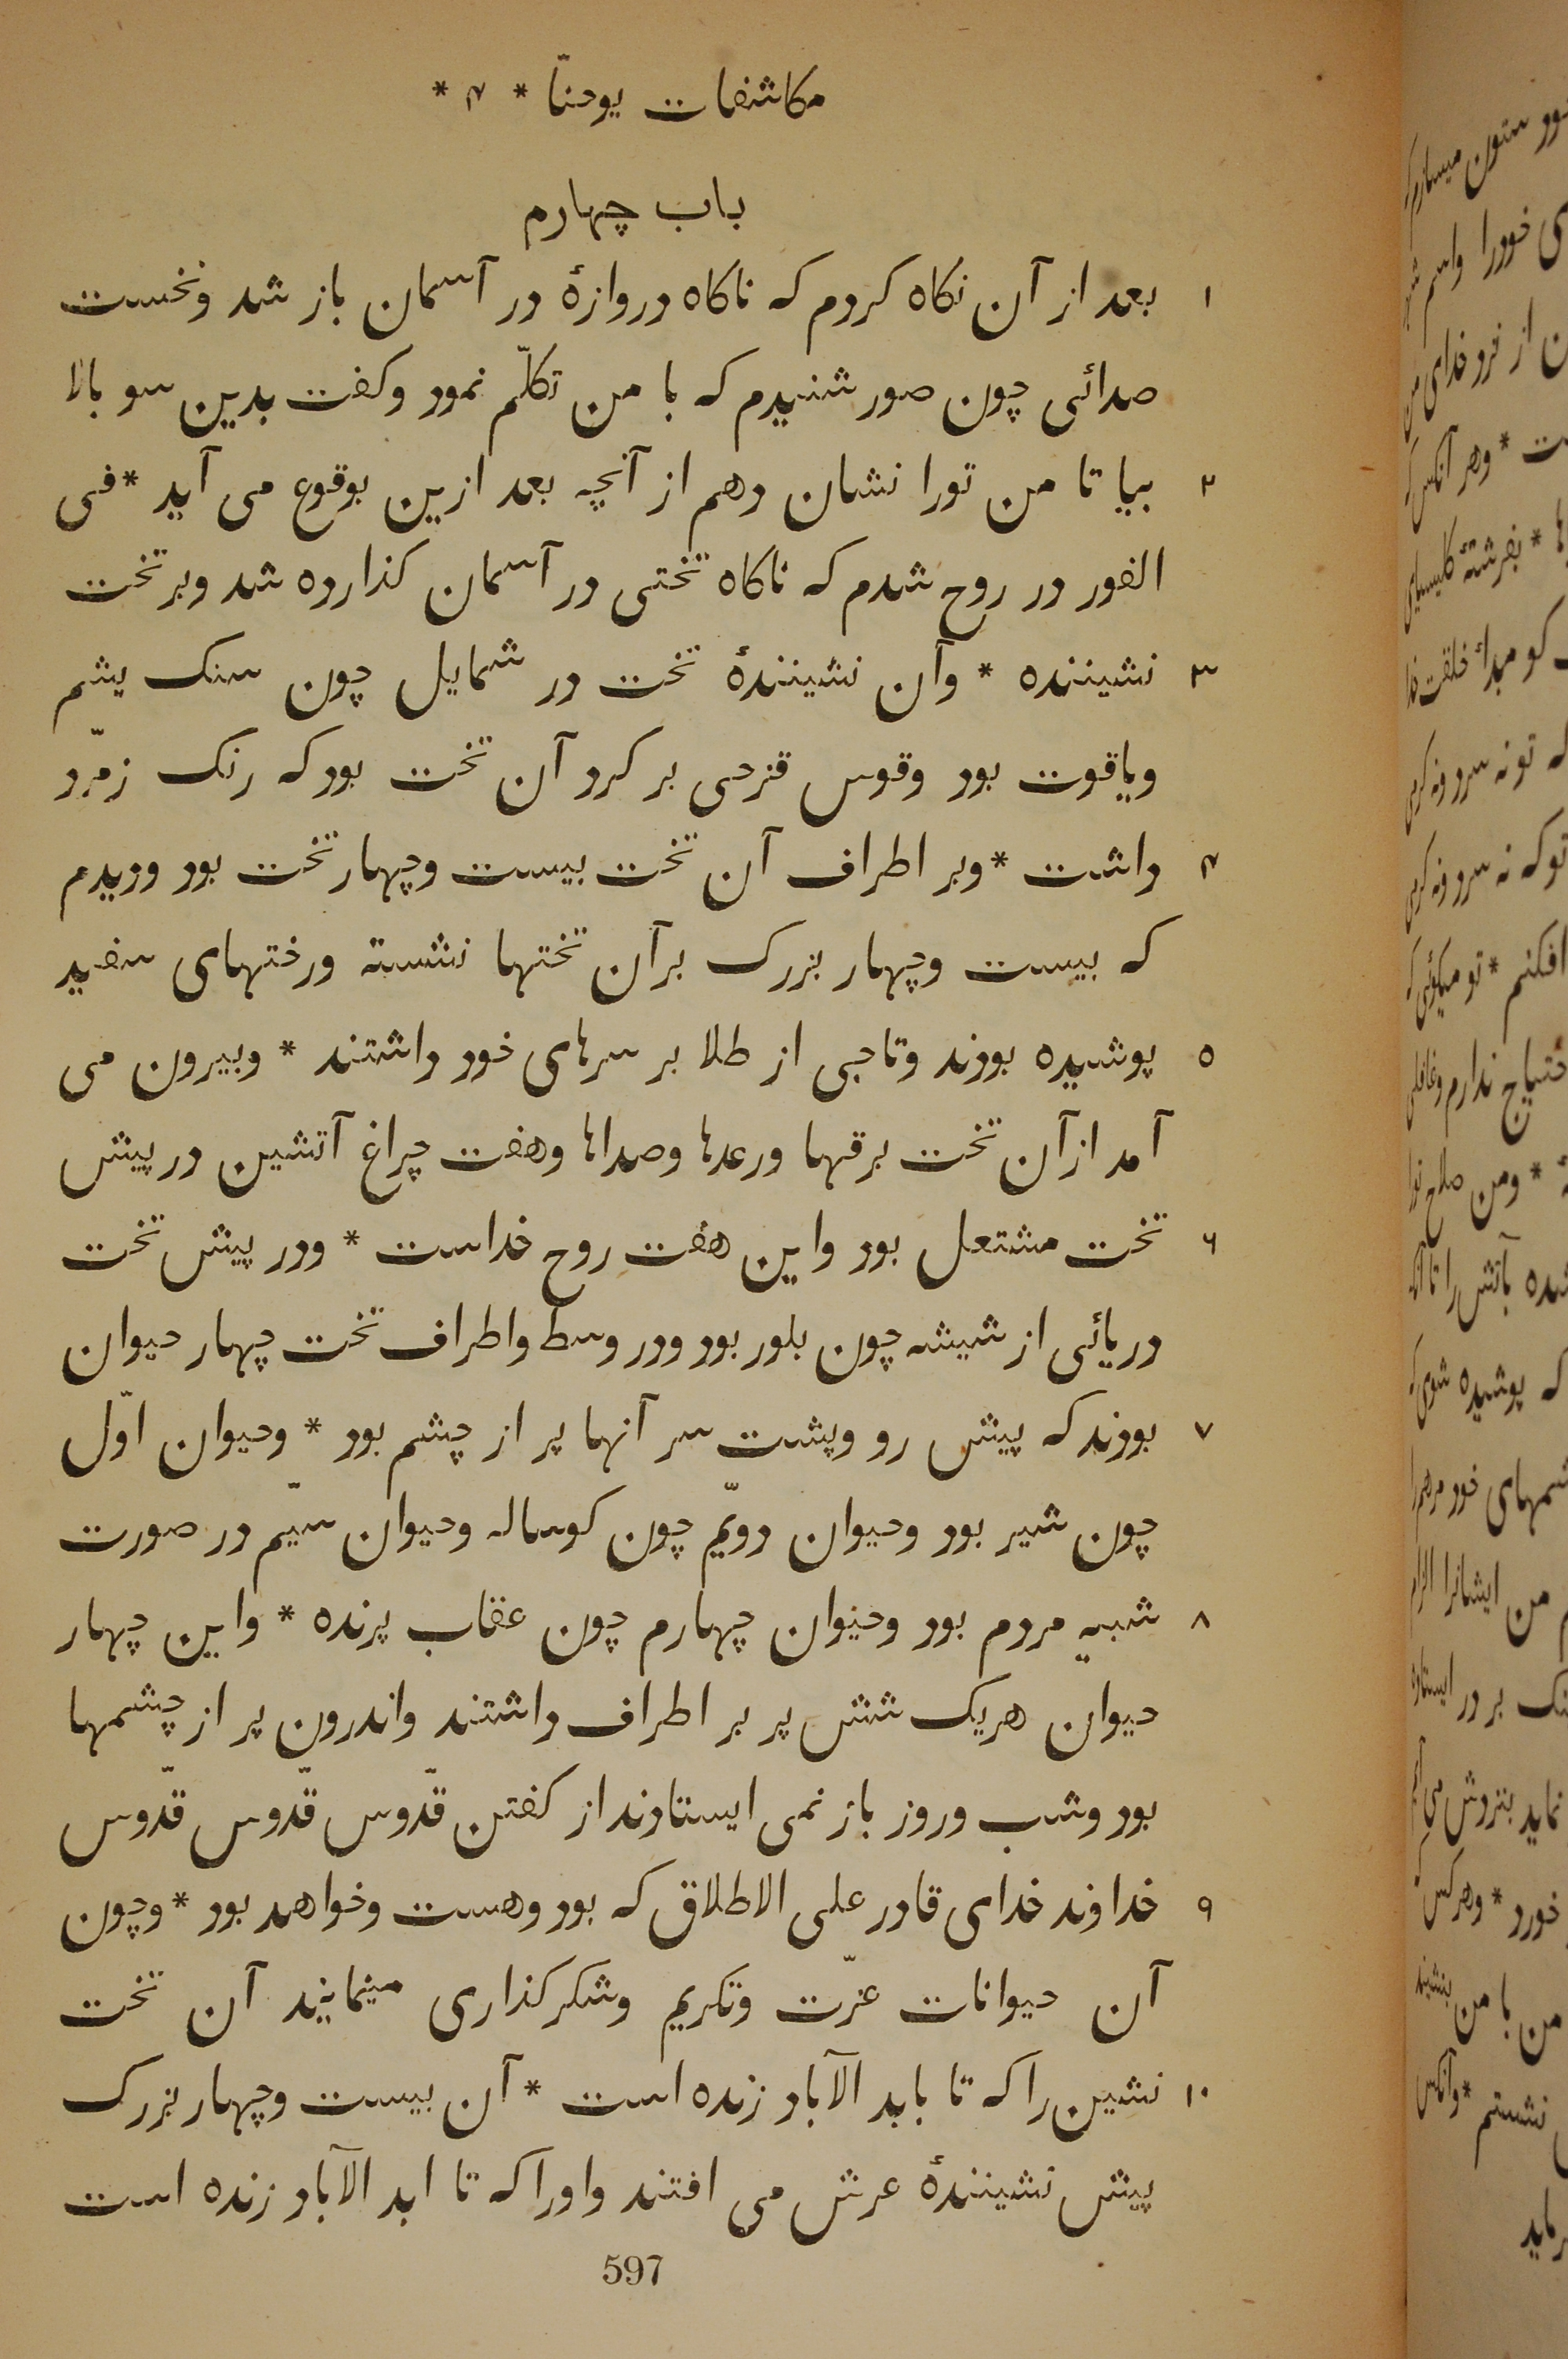 مکاشفات یوحنّا * ۴ *
باب چهارم
۱ بعد از آن نکاه کردم که ناکاه دروازهٔ در آسمان باز شد ونخست
صدائی چون صور شنیدم که با من تکلّم نمود وکفت بدین سو بالا
۲ بیا تا من تورا نشان دهم از آنچه بعد ازین بوقوع می آید * فی
الفور در روح شدم که ناکاه تختی در آسمان کذارده شد وبر تخت
۳ نشیننده * وآن نشینندهٔ تخت در شمایل چون سنک یشم
ویاقوت بود وقوس قزحی بر کرد آن تخت بود که رنک زمّرد
۴ داشت * وبر اطراف آن تخت بیست وچهار تخت بود ودیدم
که بیست وچهار بزرک برآن تختها نشسته ورختهای سفید
۵ پوشیده بودند وتاجی از طلا بر سرهای خود داشتند * وبیرون می
آمد ازآن تخت برقها ورعدها وصداها وهفت چراغ آتشین در پیش
۶ تخت مشتعل بود واین هفت روح خداست * ودر پیش تخت
دریائی از شیشه چون بلور بود ودر وسط واطراف تخت چهار حیوان
۷ بودند که پیش رو وپشت سر آنها پر از چشم بود * وحیوان اوّل
چون شیر بود وحیوان دویّم چون کوساله وحیوان سیّم در صورت
۸ شبیه مردم بود وحیوان چهارم چون عقاب پرنده * واین چهار
حیوان هریک شش پر بر اطراف داشتند واندرون پر از چشمها
بود وشب وروز باز نمی ایستادند از کفتن قدّوس قدّوس قدّوس
۹ خداوند خدای قادر علی الاطلاق که بود وهست وخواهد بود * وچون
آن حیوانات عزّت وتکریم وشکرکذاری مینمایند آن تخت
۱۰ نشین را که تا بابد الآباد زنده است * آن بیست وچهار بزرک
پیش نشینندهٔ عرش می افتند واورا که تا ابد الآباد زنده است
597